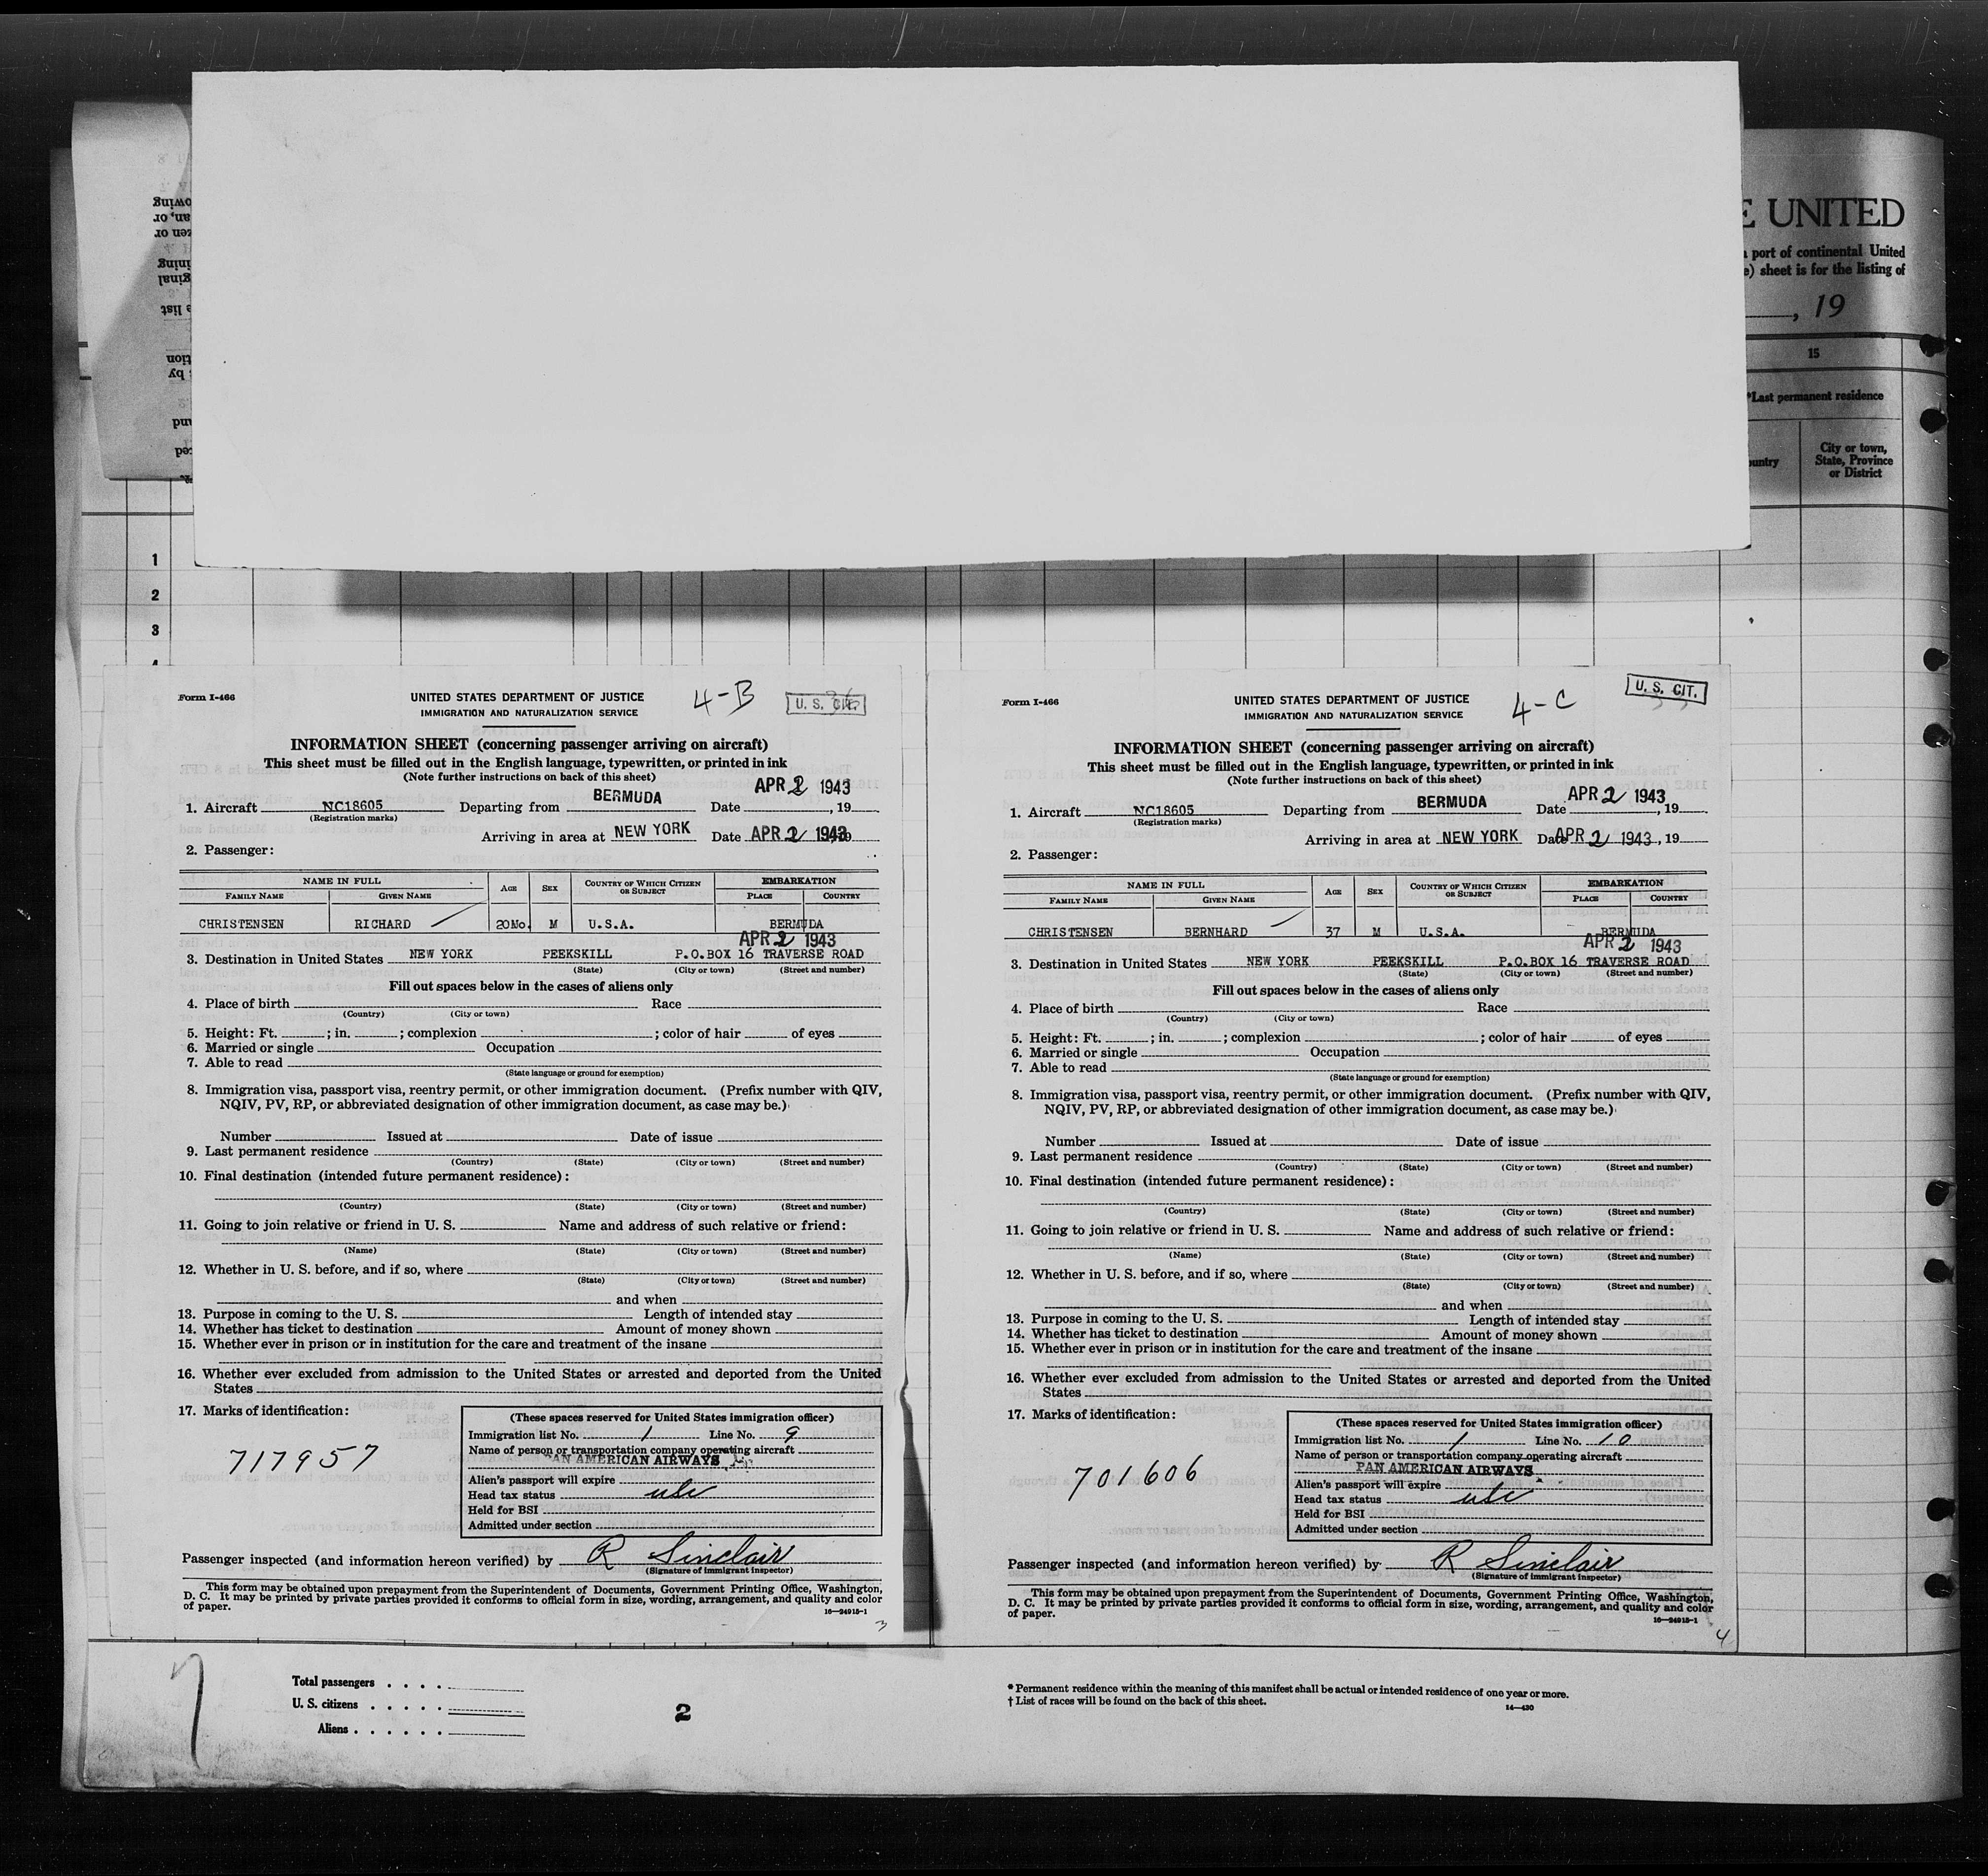 E UNITED
port of continental United
e) sheet is for the listing of
, 19
15
*Last permanent residence
City or town,
State, Province
or District
1
2
3
Form I-466
UNITED STATES DEPARTMENT OF JUSTICE
4-B
U. S. CIT.
IMMIGRATION AND NATURALIZATION SERVICE
INFORMATION SHEET (concerning passenger arriving on aircraft)
This sheet must be filled out in the English language, typewritten, or printed in ink
(Note further instructions on back of this sheet)
1. Aircraft NC18605 Departing from BERMUDA Date APR 2 1943, 19
(Registration marks)
Arriving in area at NEW YORK Date APR 2 1943, 19
2. Passenger:
NAME IN FULL AGE SEX COUNTRY OF WHICH CITIZEN OR SUBJECT EMBARKATION
FAMILY NAME GIVEN NAME PLACE COUNTRY
CHRISTENSEN RICHARD 20Mo. M U.S.A. BERMUDA
APR 2 1943
3. Destination in United States NEW YORK PEEKSKILL P.O.BOX 16 TRAVERSE ROAD
(State) (City or town) (Street and number)
Fill out spaces below in the cases of aliens only
4. Place of birth Race
(Country) (City or town)
5. Height: Ft. ; in. ; complexion ; color of hair of eyes
6. Married or single Occupation
7. Able to read
(State language or ground for exemption)
8. Immigration visa, passport visa, reentry permit, or other immigration document. (Prefix number with QIV,
NQIV, PV, RP, or abbreviated designation of other immigration document, as case may be.)
Number Issued at Date of issue
9. Last permanent residence
(Country) (State) (City or town) (Street and number)
10. Final destination (intended future permanent residence):
(Country) (State) (City or town) (Street and number)
11. Going to join relative or friend in U. S. Name and address of such relative or friend:
(Name) (State) (City or town) (Street and number)
12. Whether in U. S. before, and if so, where
(State) (City or town) (Street and number)
and when
13. Purpose in coming to the U. S. Length of intended stay
14. Whether has ticket to destination Amount of money shown
15. Whether ever in prison or in institution for the care and treatment of the insane
16. Whether ever excluded from admission to the United States or arrested and deported from the United
States
17. Marks of identification:
717957
(These spaces reserved for United States immigration officer)
Immigration list No. 1 Line No. 9
Name of person or transportation company operating aircraft
PAN AMERICAN AIRWAYS
Alien's passport will expire
Head tax status usc
Held for BSI
Admitted under section
Passenger inspected (and information hereon verified) by R Sinclair
(Signature of immigrant inspector)
This form may be obtained upon prepayment from the Superintendent of Documents, Government Printing Office, Washington,
D. C. It may be printed by private parties provided it conforms to official form in size, wording, arrangement, and quality and color
of paper.
16—24915-1
3
Form I-466
UNITED STATES DEPARTMENT OF JUSTICE
4-C
U. S. CIT.
IMMIGRATION AND NATURALIZATION SERVICE
INFORMATION SHEET (concerning passenger arriving on aircraft)
This sheet must be filled out in the English language, typewritten, or printed in ink
(Note further instructions on back of this sheet)
1. Aircraft NC18605 Departing from BERMUDA Date APR 2 1943, 19
(Registration marks)
Arriving in area at NEW YORK Date APR 2 1943, 19
2. Passenger:
NAME IN FULL AGE SEX COUNTRY OF WHICH CITIZEN OR SUBJECT EMBARKATION
FAMILY NAME GIVEN NAME PLACE COUNTRY
CHRISTENSEN BERNHARD 37 M U.S.A. BERMUDA
APR 2 1943
3. Destination in United States NEW YORK PEEKSKILL P.O.BOX 16 TRAVERSE ROAD
(State) (City or town) (Street and number)
Fill out spaces below in the cases of aliens only
4. Place of birth Race
(Country) (City or town)
5. Height: Ft. ; in. ; complexion ; color of hair of eyes
6. Married or single Occupation
7. Able to read
(State language or ground for exemption)
8. Immigration visa, passport visa, reentry permit, or other immigration document. (Prefix number with QIV,
NQIV, PV, RP, or abbreviated designation of other immigration document, as case may be.)
Number Issued at Date of issue
9. Last permanent residence
(Country) (State) (City or town) (Street and number)
10. Final destination (intended future permanent residence):
(Country) (State) (City or town) (Street and number)
11. Going to join relative or friend in U. S. Name and address of such relative or friend:
(Name) (State) (City or town) (Street and number)
12. Whether in U. S. before, and if so, where
(State) (City or town) (Street and number)
and when
13. Purpose in coming to the U. S. Length of intended stay
14. Whether has ticket to destination Amount of money shown
15. Whether ever in prison or in institution for the care and treatment of the insane
16. Whether ever excluded from admission to the United States or arrested and deported from the United
States
17. Marks of identification:
701606
(These spaces reserved for United States immigration officer)
Immigration list No. 1 Line No. 10
Name of person or transportation company operating aircraft
PAN AMERICAN AIRWAYS
Alien's passport will expire
Head tax status usc
Held for BSI
Admitted under section
Passenger inspected (and information hereon verified) by R Sinclair
(Signature of immigrant inspector)
This form may be obtained upon prepayment from the Superintendent of Documents, Government Printing Office, Washington,
D. C. It may be printed by private parties provided it conforms to official form in size, wording, arrangement, and quality and color
of paper.
16—24915-1
4
Total passengers
U. S. citizens
Aliens
2
* Permanent residence within the meaning of this manifest shall be actual or intended residence of one year or more.
† List of races will be found on the back of this sheet.
14—430